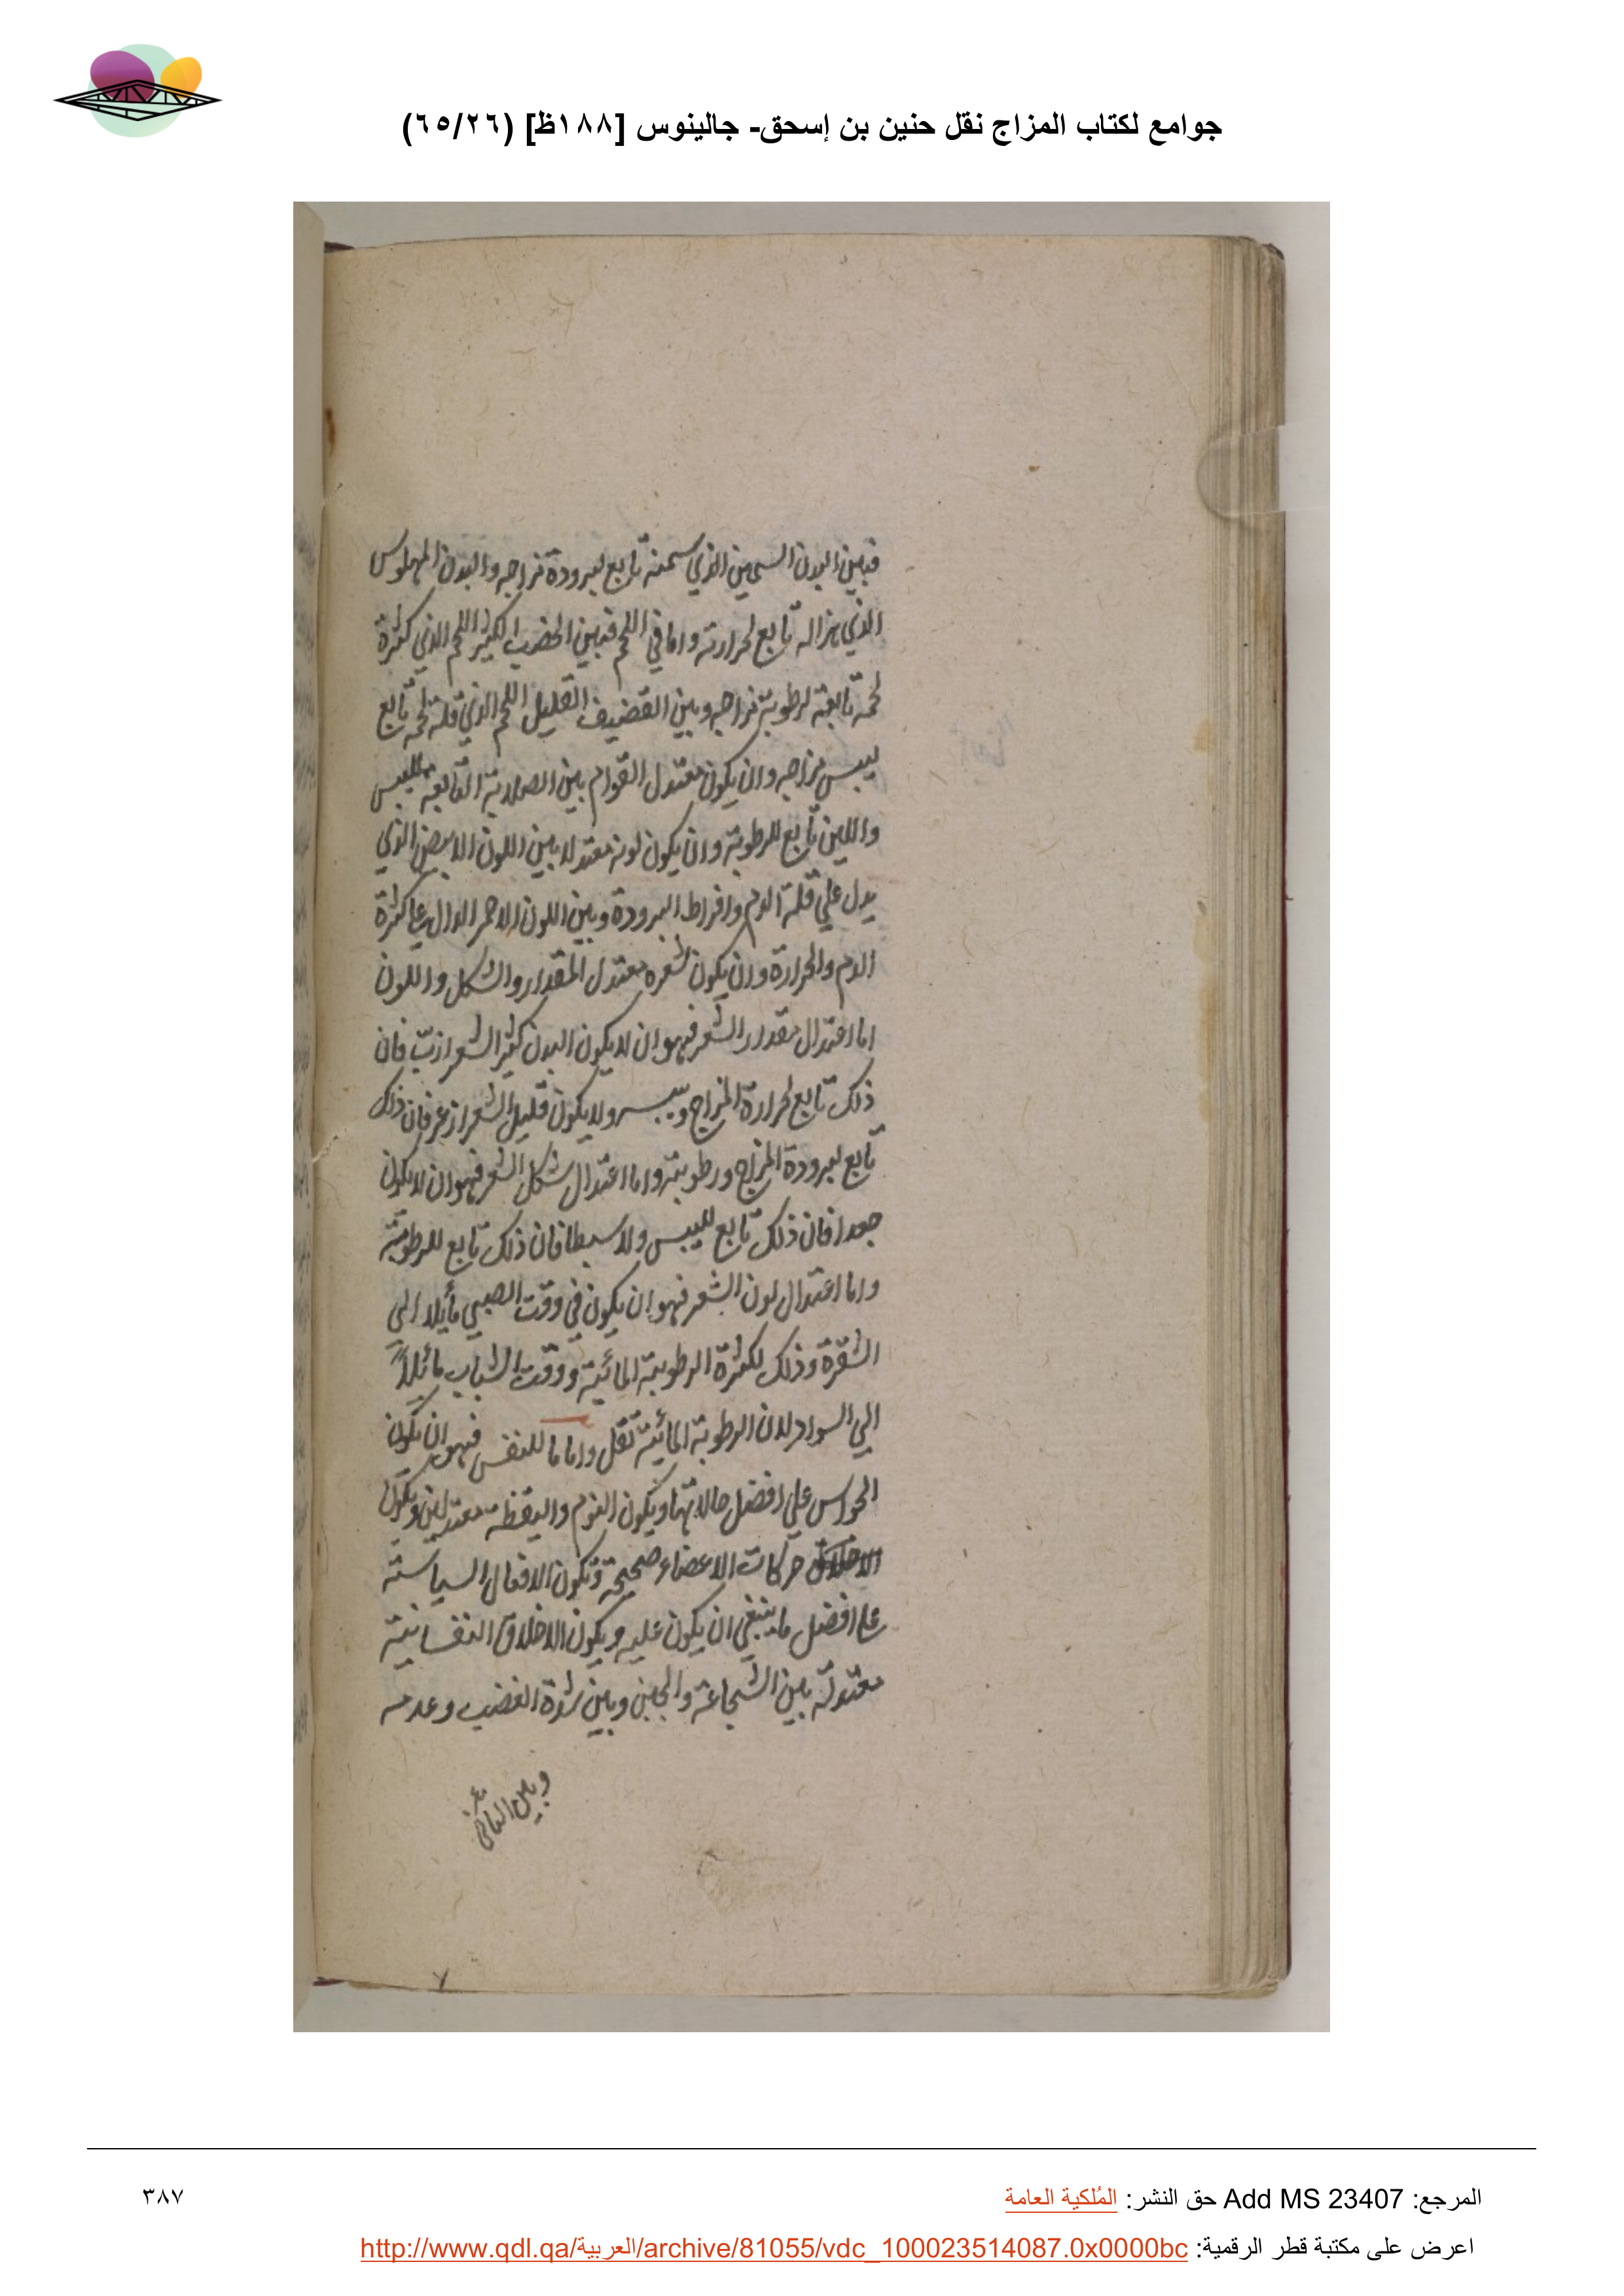 جوامع لكتاب المزاج نقل حنين بن إسحق- جالينوس [١٨٨ظ] (٦٥/٢٦)
فبين البدن السمين الذي سمنه تابع لبرودة مزاجه والبدن المهلوس
الذي هزاله تابع لحرارته واما في اللحم فبين الخصب الكثير اللحم الذي كثرة
لحمه تابعة لرطوبة مزاجه وبين القضيف القليل اللحم الذي قلة لحمه تابع
ليبس مزاجه وان يكون معتدل القوام بين الصلابة التابعة لليبس
واللين تابع للرطوبة وان يكون لونه معتدلا بين اللون الابيض الذي
يدل علي قلة الدم وافراط البرودة وبين اللون الاحمر الدال علي كثرة
الدم والحرارة وان يكون شعره معتدل المقدار والشكل واللون
اما اعتدال مقدار الشعر فهو ان لا يكون البدن كثير الشعر ازبّ فان
ذلك تابع لحرارة المزاج ويبسه ولا يكون قليل الشعر ازعر فان ذلك
تابع لبرودة المزاج ورطوبته واما اعتدال شكل الشعر فهو ان لا يكون
جعدا فان ذلك تابع لليبس ولا سبطا فان ذلك تابع للرطوبة
واما اعتدال لون الشعر فهو ان يكون في وقت الصبي مأيلا الي
الشقرة وذلك لكثرة الرطوبة المائية ووقت الشباب مائلاً
الي السواد لان الرطوبة المائية تقل واما ما للنفس فهو ان يكون
الحواس علي افضل حالاتها ويكون النوم واليقظة معتدلين ويكون
حركات الاعضاء صحيحة وتكون الافعال السياسية
علي افضل ما ينبغي ان يكون عليه ويكون الاخلاق النفسانية
معتدلة بين الشجاعة والجبن وبين شدة الغضب وعدمه
وبين
المرجع: Add MS 23407 حق النشر: المُلكية العامة
٣٨٧
اعرض على مكتبة قطر الرقمية: http://www.qdl.qa/العربية/archive/81055/vdc_100023514087.0x0000bc